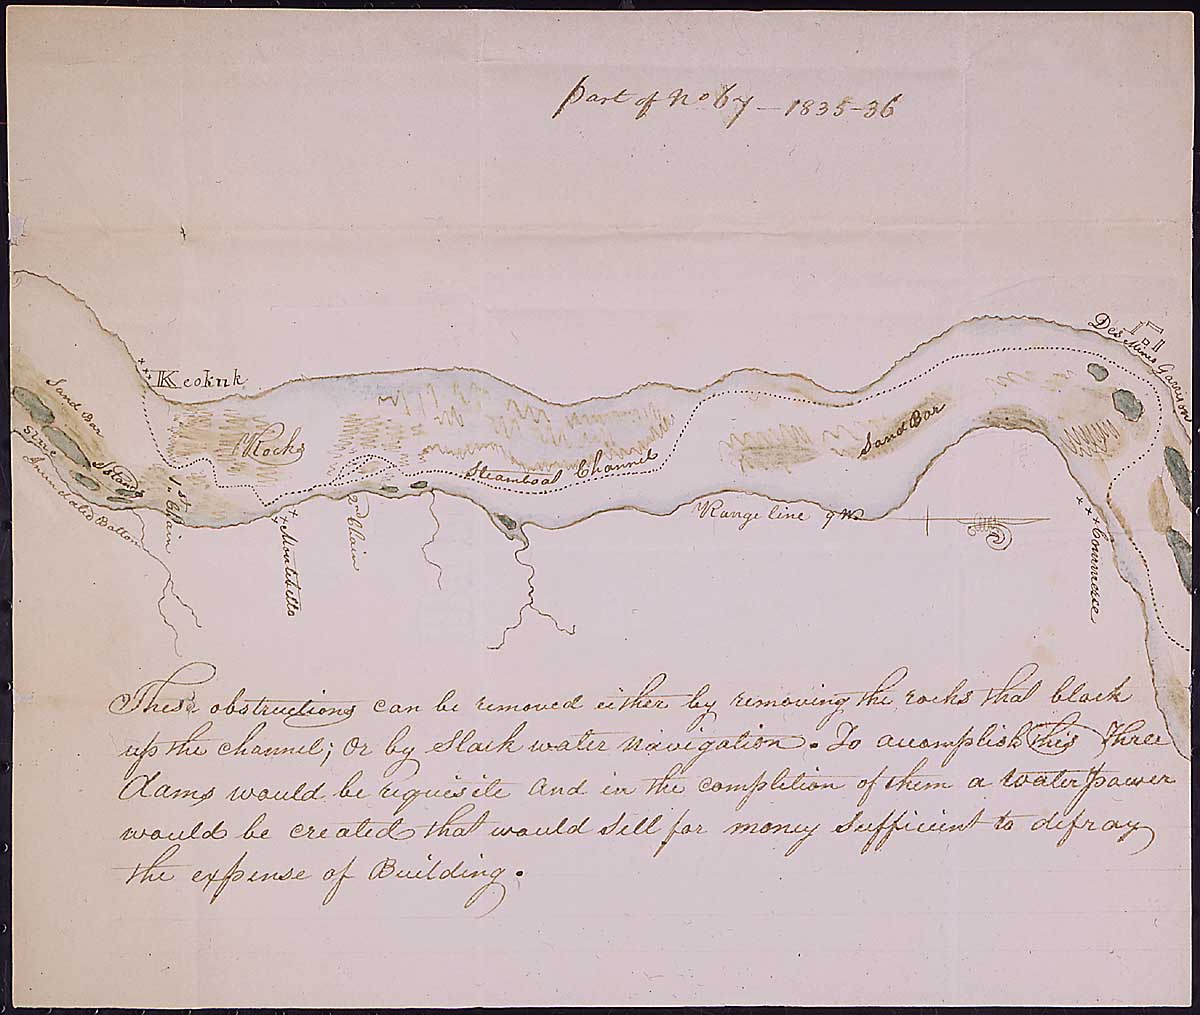 part of No 67 — 1835-36
Des Mines Garrison
Keokuk
Rocks
Sand Bar
Sand Bar
Island
Size
Inundated Bottom
1st Chain
Montebello
2nd Chain
Steamboat Channel
Range line 9 W.
Commerse
These obstructions can be removed either by removing the rocks that block
up the channel; Or by Slack water navigation. To accomplish this Three
Dams would be requisite and in the completion of them a water power
would be created that would sell for money sufficient to difray
the expense of Building.